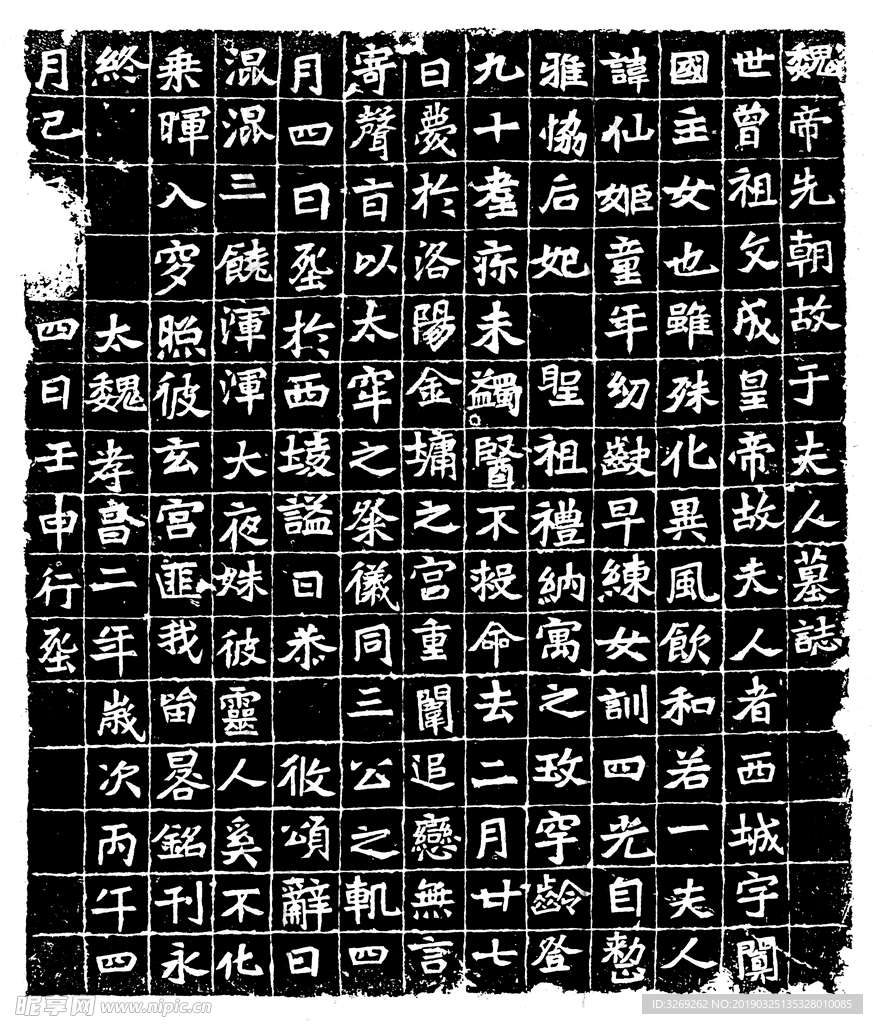 魏帝先朝故于夫人墓誌
世曾祖文成皇帝故夫人者西城宇闐
國主女也雖殊化異風飲和若一夫人
諱仙姬童年幼齔早練女訓四光自整
雅恊后妃 聖祖禮納寓之玫宇齡登
九十耋疹未蠲醫不救命去二月廿七
日薨於洛陽金墉之宮重闈追戀無言
寄聲旨以太牢之祭儀同三公之軌四
月四日塟於西陵謚曰恭 攸頌辭曰
混混三饒渾渾大夜姝彼靈人奚不化
乘暉入穸照彼玄宮匪我留晷銘刊永
終 太魏孝昌二年歲次丙午四
月己 四日壬申行塟
昵享网 www.nipic.cn
ID:3269262 NO:20190325135328010085